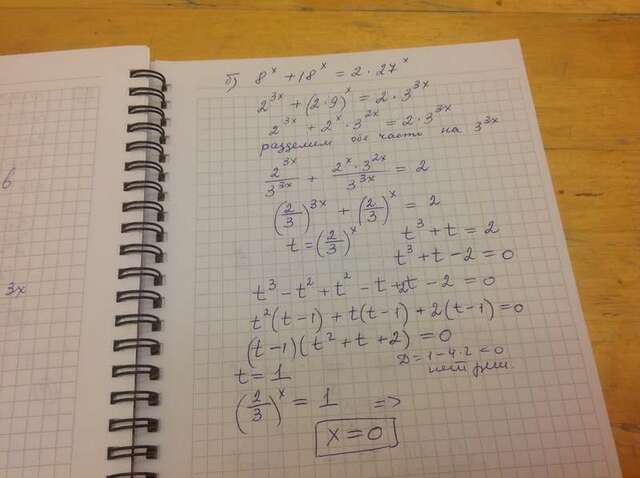 б) 8^x + 18^x = 2 · 27^x
2^{3x} + (2·9)^x = 2 · 3^{3x}
2^{3x} + 2^x · 3^{2x} = 2 · 3^{3x}
разделим обе часть на 3^{3x}
2^{3x}/3^{3x} + 2^x · 3^{2x}/3^{3x} = 2
(2/3)^{3x} + (2/3)^x = 2
t = (2/3)^x t^3 + t = 2
t^3 + t - 2 = 0
t^3 - t^2 + t^2 - t + 2t - 2 = 0
t^2(t-1) + t(t-1) + 2(t-1) = 0
(t-1)(t^2 + t + 2) = 0
D = 1 - 4·2 < 0
нет реш.
t = 1
(2/3)^x = 1 =>
x = 0
в
3x